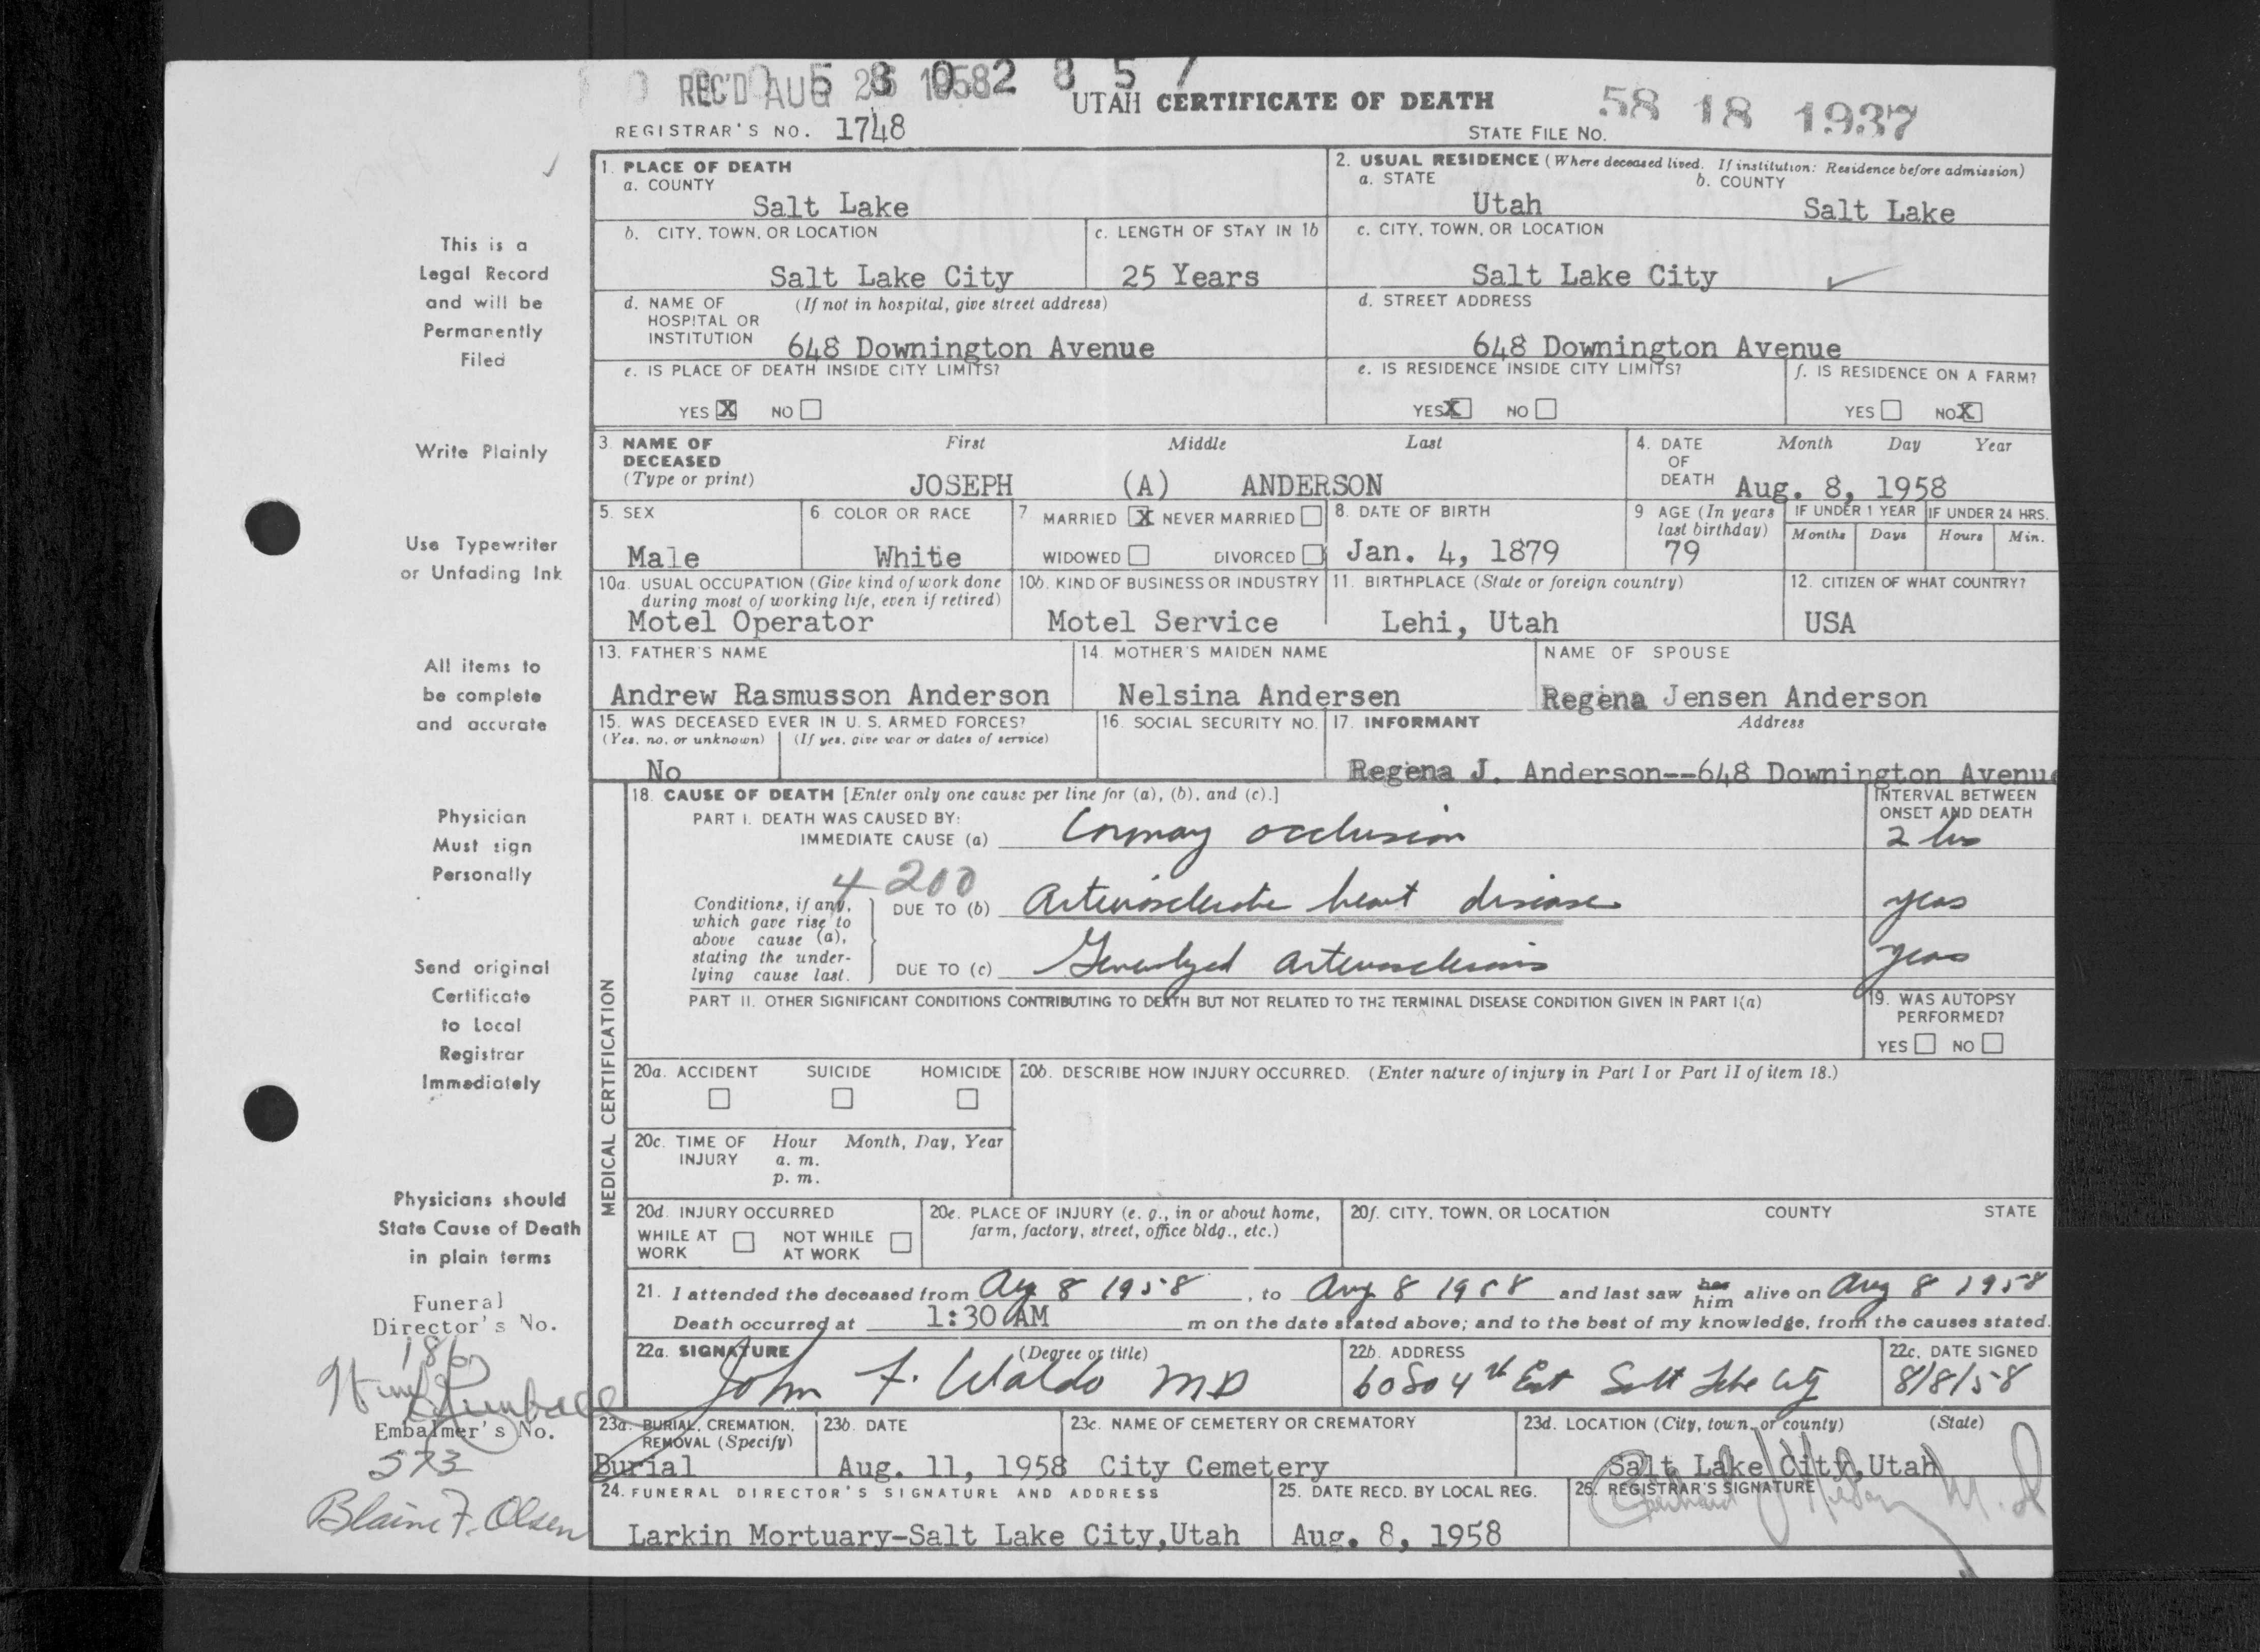 REC'D AUG 26 1958 5 8 0 2 8 5 7
UTAH CERTIFICATE OF DEATH
58 18 1937
REGISTRAR'S NO. 1748
STATE FILE NO.
This is a
Legal Record
and will be
Permanently
Filed
Write Plainly
Use Typewriter
or Unfading Ink
All items to
be complete
and accurate
Physician
Must sign
Personally
Send original
Certificate
to Local
Registrar
Immediately
Physicians should
State Cause of Death
in plain terms
Funeral
Director's No.
186
Kimball
Embalmer's No.
573
Blaine F. Olsen
1. PLACE OF DEATH
a. COUNTY
Salt Lake
2. USUAL RESIDENCE (Where deceased lived. If institution: Residence before admission)
a. STATE b. COUNTY
Utah Salt Lake
b. CITY, TOWN, OR LOCATION
Salt Lake City
c. LENGTH OF STAY IN 1b
25 Years
c. CITY, TOWN, OR LOCATION
Salt Lake City
d. NAME OF (If not in hospital, give street address)
HOSPITAL OR
INSTITUTION 648 Downington Avenue
d. STREET ADDRESS
648 Downington Avenue
e. IS PLACE OF DEATH INSIDE CITY LIMITS?
YES X NO
e. IS RESIDENCE INSIDE CITY LIMITS?
YES X NO
f. IS RESIDENCE ON A FARM?
YES NO X
3. NAME OF First Middle Last
DECEASED
(Type or print) JOSEPH (A) ANDERSON
4. DATE Month Day Year
OF
DEATH Aug. 8, 1958
5. SEX
Male
6. COLOR OR RACE
White
7. MARRIED X NEVER MARRIED
WIDOWED DIVORCED
8. DATE OF BIRTH
Jan. 4, 1879
9 AGE (In years
last birthday)
79
IF UNDER 1 YEAR IF UNDER 24 HRS.
Months Days Hours Min.
10a. USUAL OCCUPATION (Give kind of work done
during most of working life, even if retired)
Motel Operator
10b. KIND OF BUSINESS OR INDUSTRY
Motel Service
11. BIRTHPLACE (State or foreign country)
Lehi, Utah
12. CITIZEN OF WHAT COUNTRY?
USA
13. FATHER'S NAME
Andrew Rasmusson Anderson
14. MOTHER'S MAIDEN NAME
Nelsina Andersen
NAME OF SPOUSE
Regena Jensen Anderson
15. WAS DECEASED EVER IN U. S. ARMED FORCES?
(Yes, no, or unknown) (If yes, give war or dates of service)
No
16. SOCIAL SECURITY NO.
17. INFORMANT Address
Regena J. Anderson--648 Downington Avenue
MEDICAL CERTIFICATION
18. CAUSE OF DEATH [Enter only one cause per line for (a), (b), and (c).]
INTERVAL BETWEEN
ONSET AND DEATH
PART I. DEATH WAS CAUSED BY:
IMMEDIATE CAUSE (a) Coronary occlusion 2 hrs
4200
Conditions, if any,
which gave rise to
above cause (a),
stating the under-
lying cause last.
DUE TO (b) Arteriosclerotic heart disease years
DUE TO (c) Generalized arteriosclerosis years
PART II. OTHER SIGNIFICANT CONDITIONS CONTRIBUTING TO DEATH BUT NOT RELATED TO THE TERMINAL DISEASE CONDITION GIVEN IN PART I(a)
19. WAS AUTOPSY
PERFORMED?
YES NO
20a. ACCIDENT SUICIDE HOMICIDE
20b. DESCRIBE HOW INJURY OCCURRED. (Enter nature of injury in Part I or Part II of item 18.)
20c. TIME OF Hour Month, Day, Year
INJURY a. m.
p. m.
20d. INJURY OCCURRED
WHILE AT NOT WHILE
WORK AT WORK
20e. PLACE OF INJURY (e. g., in or about home,
farm, factory, street, office bldg., etc.)
20f. CITY, TOWN, OR LOCATION COUNTY STATE
21. I attended the deceased from Aug 8 1958, to Aug 8 1958 and last saw her him alive on Aug 8 1958
Death occurred at 1:30 AM m on the date stated above; and to the best of my knowledge, from the causes stated.
22a. SIGNATURE (Degree or title)
John F. Waldo MD
22b. ADDRESS
60 So 4th East Salt Lake City
22c. DATE SIGNED
8/8/58
23a. BURIAL, CREMATION,
REMOVAL (Specify)
Burial
23b. DATE
Aug. 11, 1958
23c. NAME OF CEMETERY OR CREMATORY
City Cemetery
23d. LOCATION (City, town, or county) (State)
Salt Lake City, Utah
24. FUNERAL DIRECTOR'S SIGNATURE AND ADDRESS
Larkin Mortuary-Salt Lake City,Utah
25. DATE RECD. BY LOCAL REG.
Aug. 8, 1958
26. REGISTRAR'S SIGNATURE
M.D